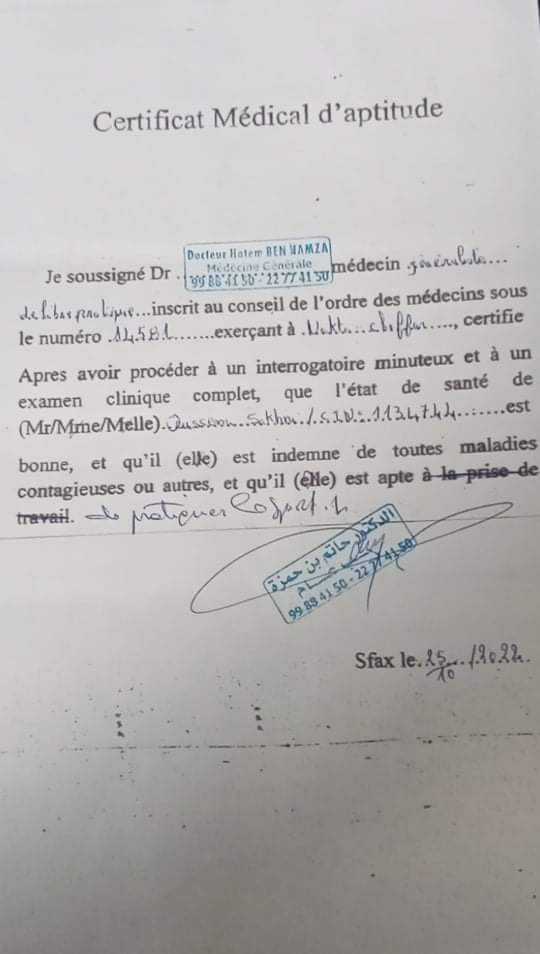 Certificat Médical d'aptitude
Docteur Hatem BEN HAMZA
Médecine Générale
99 88 41 50 - 22 77 41 50
Je soussigné Dr . médecin généraliste...
de libre pratique...inscrit au conseil de l'ordre des médecins sous
le numéro .14581.......exerçant à ...., certifie
Apres avoir procéder à un interrogatoire minuteux et à un
examen clinique complet, que l'état de santé de
(Mr/Mme/Melle). Sakho / : 1134744.......est
bonne, et qu'il (elle) est indemne de toutes maladies
contagieuses ou autres, et qu'il (elle) est apte à la prise de
travail. de pratiquer le sport.
الدكتور حاتم بن حمزة
طب عـــام
99 88 41 50 - 22 77 41 50
Sfax le.25/10../2022.